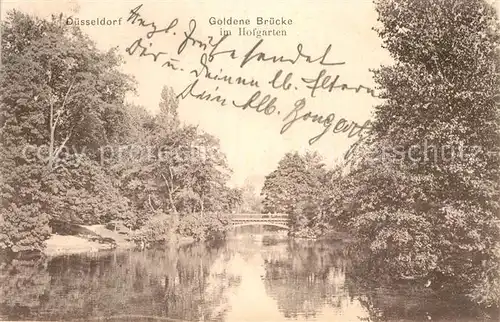 Düsseldorf
Goldene Brücke
im Hofgarten
Herzl. Grüße sendet
Dir u. Deinen lb. Eltern
Dein Alb.
© www.oldthing.com